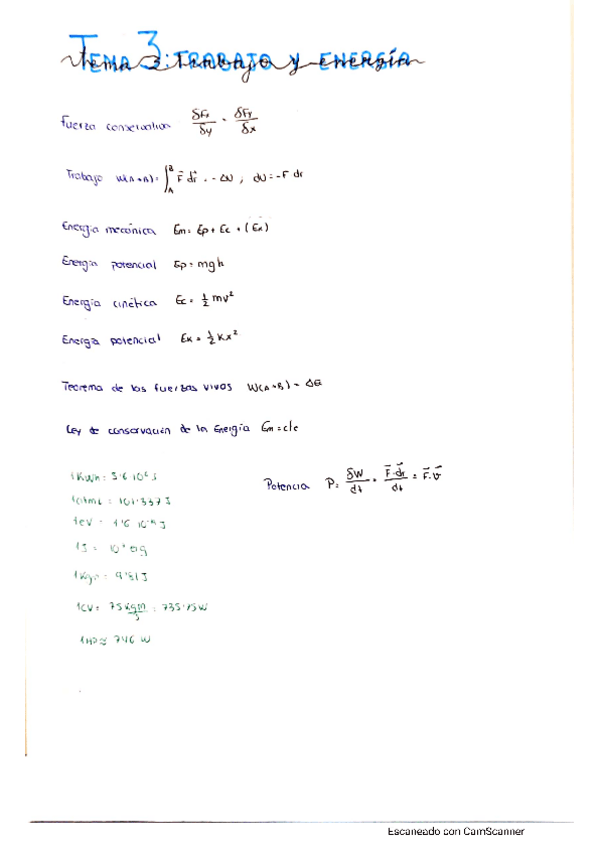 Tema 3: Trabajo y energía
TEMA 3: TRABAJO Y ENERGÍA
Fuerza conservativa δFx/δy = δFy/δx
Trabajo W(A→B) = ∫_A^B F⃗ dr⃗ = -ΔU ; dU = -F dr
Energía mecánica Em = Ep + Ec + (Ek)
Energía potencial Ep = mgh
Energía cinética Ec = ½ mv²
Energía potencial Ek = ½ Kx²
Teorema de las fuerzas vivas W(A→B) = ΔEc
Ley de conservación de la Energía Em = cte
Potencia P = δW/dt = F⃗·dr⃗/dt = F⃗·v⃗
1 Kwh = 3'6 10⁶ J
1 atmL = 101'337 J
1 eV = 1'6 10⁻¹⁹ J
1 J = 10⁷ erg
1 Kgm = 9'81 J
1 CV = 75 Kgm/s = 735'75 W
1 HP ≈ 746 W
Escaneado con CamScanner